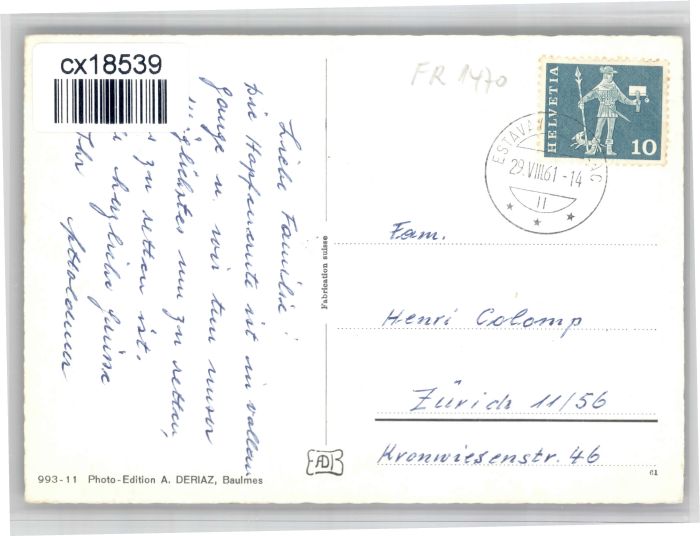 cx18539
FR 1470
HELVETIA
10
ESTAVA
29.VIII.61-14
11
Liebe Familie!
Die Hopfenernte ist in vollem
Gange u. wir tun unser
möglichstes um zu retten,
zu retten ist.
herzliche Grüsse
Ihr
Fabrication suisse
Fam.
Henri Colomp
Zürich 11/56
Kronwiesenstr. 46
993-11 Photo-Edition A. DERIAZ, Baulmes
61